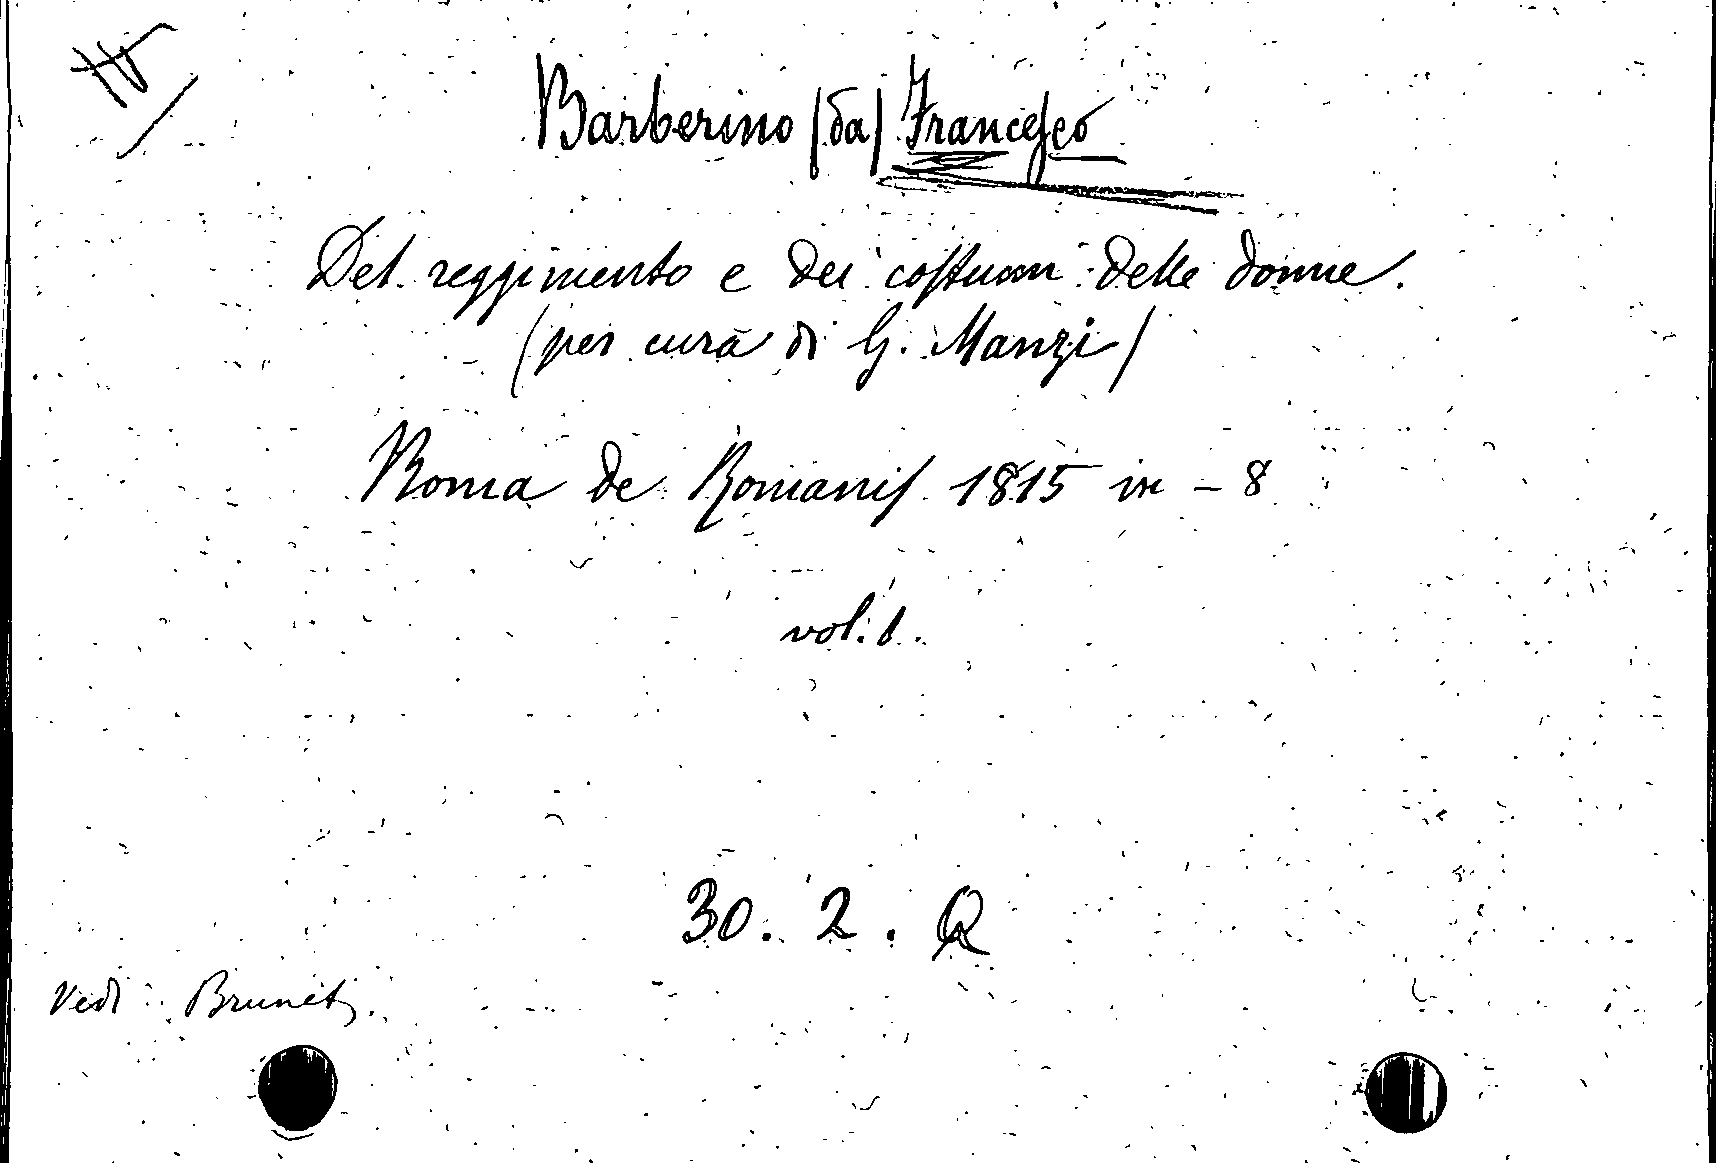 Barberino (da) Francesco
Del reggimento e dei costumi delle donne.
(per cura di G. Manzi)
Roma de Romanis 1815 in - 8
vol. 1.
30. 2. Q
Vedi Brunet.